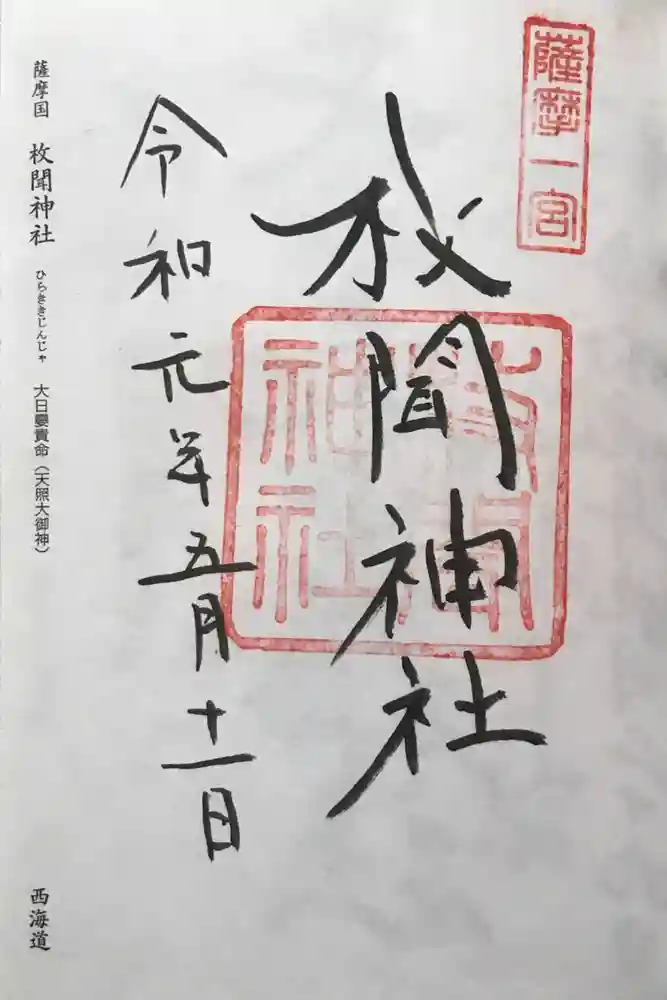 薩摩一宮
枚聞神社
枚聞神社
令和元年五月十一日
薩摩国 枚聞神社 ひらききじんじゃ 大日孁貴命(天照大御神)
西海道